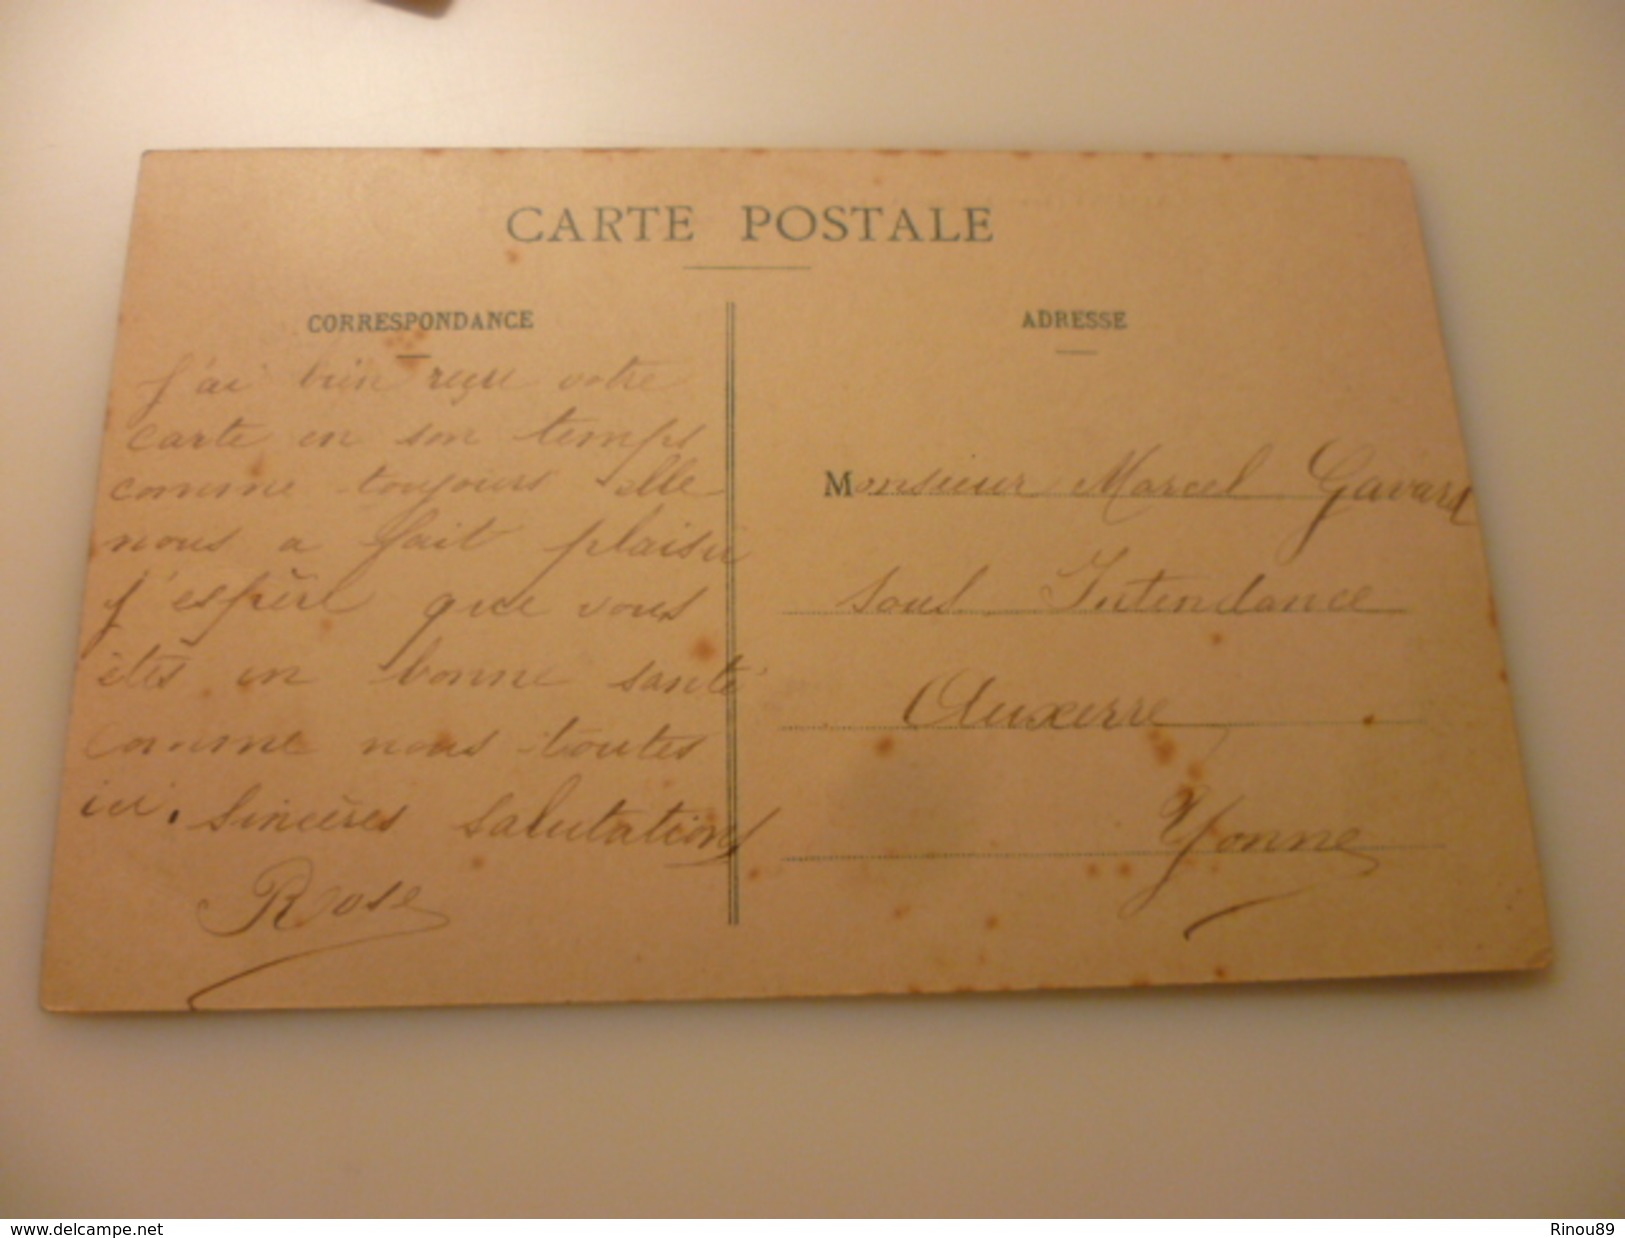 CARTE POSTALE
CORRESPONDANCE
J'ai bien reçu votre
carte en son temps
comme toujours elle
nous a fait plaisir
j'espère que vous
êtes en bonne santé
comme nous toutes
ici. Sincères salutations
Rose
ADRESSE
Monsieur Marcel Gavard
Sous Intendance
Auxerre
Yonne
www.delcampe.net
Rinou89